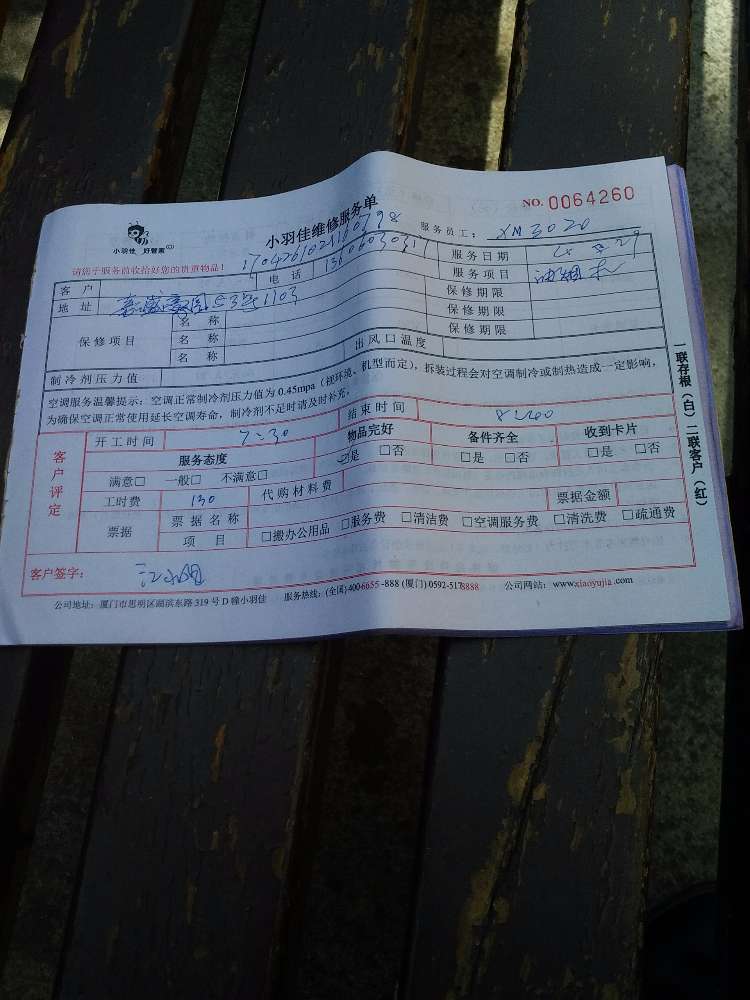 小羽佳 好管家
小羽佳维修服务单
NO. 0064260
请您于服务前收拾好您的贵重物品!
服务员工: XM3020
客户
电话
服务日期
地址
1103
服务项目 油烟机
保修项目
名称
保修期限
名称
保修期限
名称
保修期限
制冷剂压力值
出风口温度
空调服务温馨提示:空调正常制冷剂压力值为0.45mpa(视环境、机型而定),拆装过程会对空调制冷或制热造成一定影响,
为确保空调正常使用延长空调寿命,制冷剂不足时请及时补充。
客户评定
开工时间 7:30
结束时间 8:00
服务态度
物品完好
备件齐全
收到卡片
满意□ 一般□ 不满意□
□是 □否
□是 □否
□是 □否
工时费 130
代购材料费
票据金额
票据
票据名称
项目
□搬办公用品 □服务费 □清洁费 □空调服务费 □清洗费 □疏通费
客户签字:
公司地址:厦门市思明区湖滨东路319号D幢小羽佳 服务热线:(全国)4006655-888 (厦门)0592-5178888 公司网站:www.xiaoyujia.com
一联存根(白)二联客户(红)